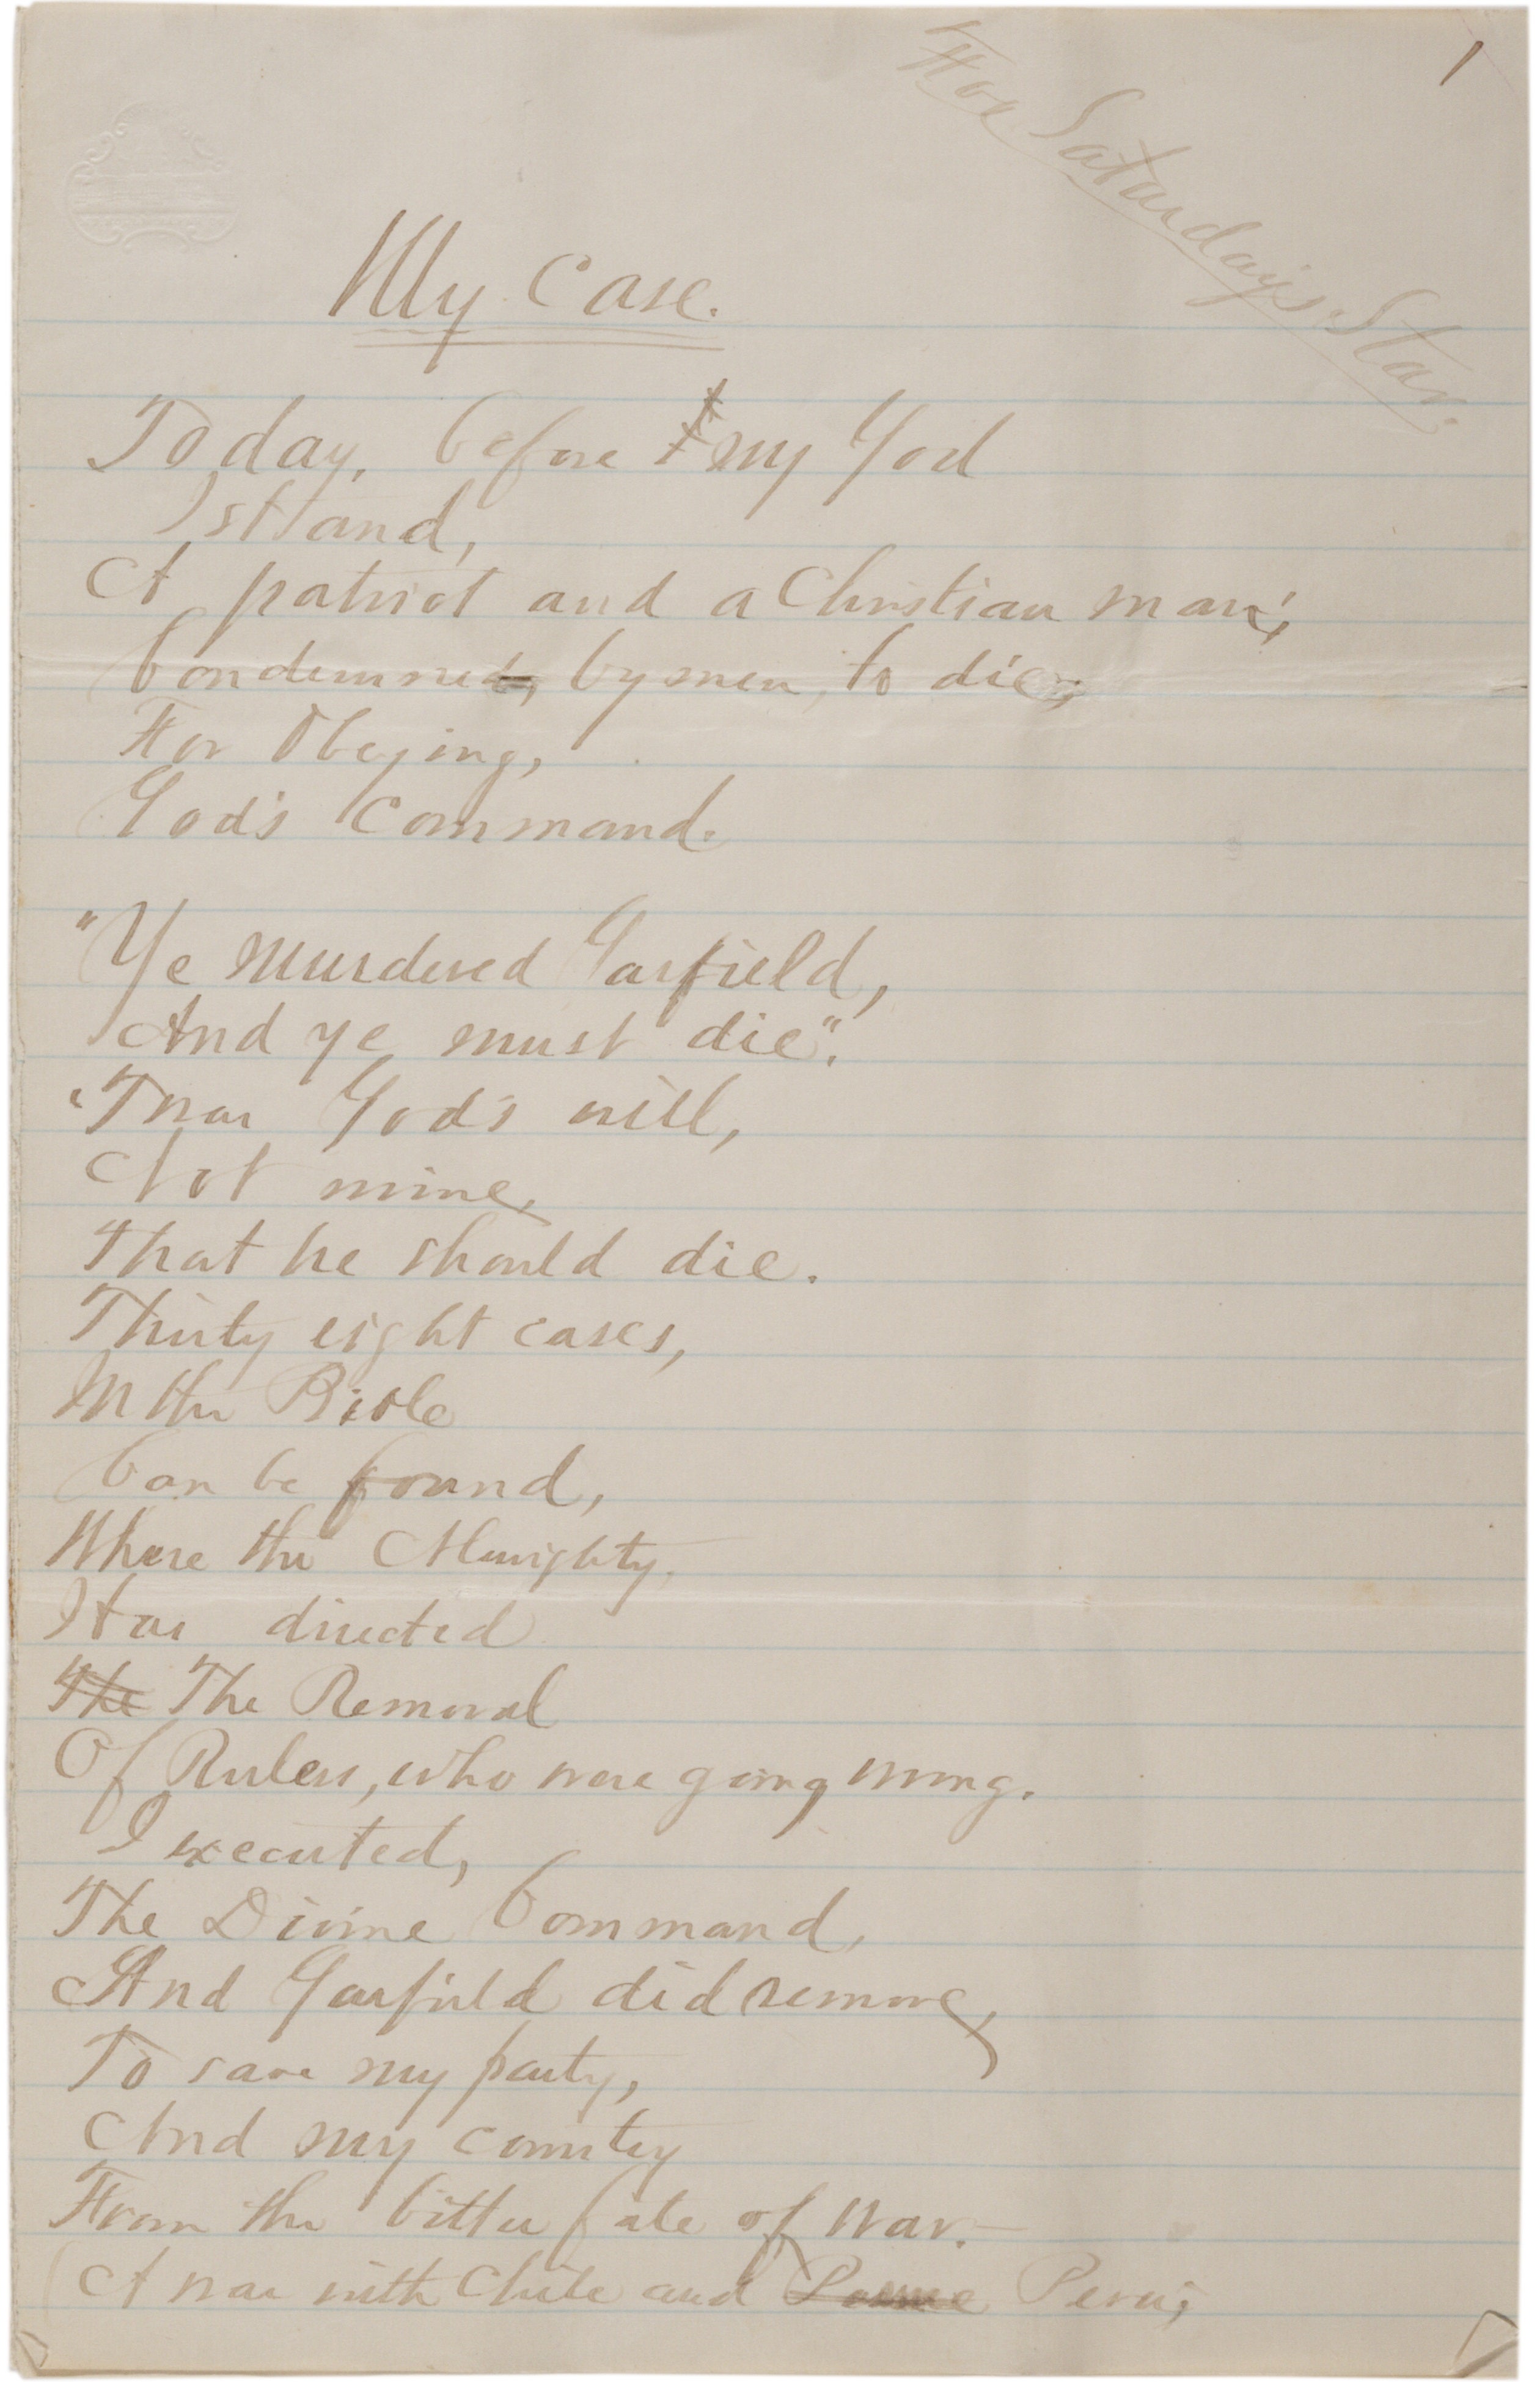 1
For Saturday's Star.
My Case.
Today, before my God
I stand,
A patriot and a Christian man;
Condemned, by men, to die,
For Obeying,
God's Command.
"Ye murdered Garfield,
And ye must die".
'Twas God's will,
Not mine,
That he should die.
Thirty eight cases,
In the Bible
Can be found,
Where the Almighty
Has directed
The The Removal
Of Rulers, who were going wrong.
I executed,
The Divine Command,
And Garfield did remove,
To save my party,
And my country
From the bitter fate of War.—
(A war with Chile and Peru;